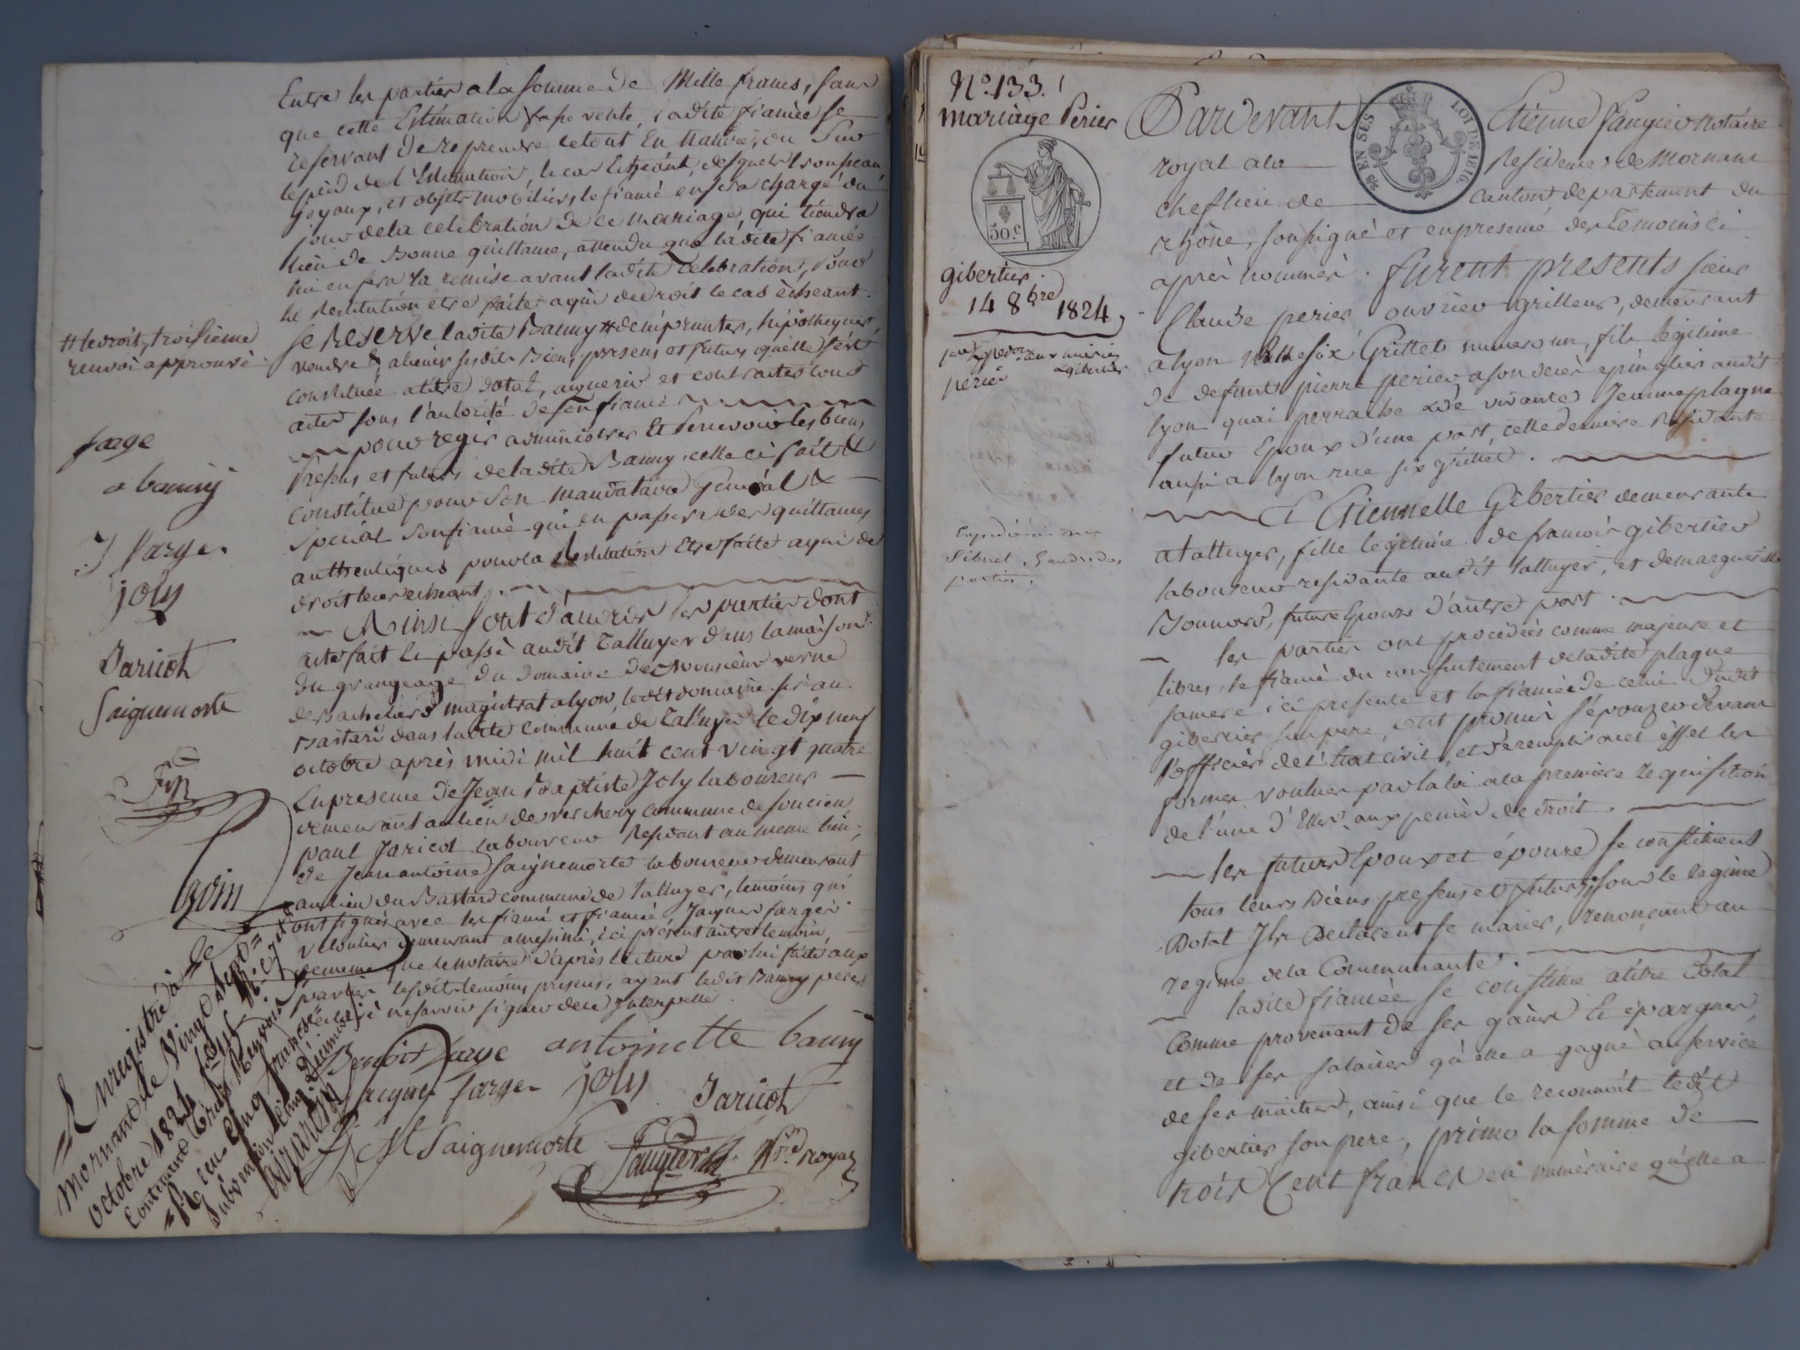 Entre les parties a la somme de Mille francs, sans
que cette Estimation fasse vente, ladite fiancée se
reservant de reprendre letout En Nature, ou Sur
lepied de l'Estimation, le cas Echéant, desquels trousseau
joyaux, et objets mobiliers le fiancé ensera chargé du
jour dela celebration de ce mariage, qui tiendra
lieu de Bonne quittance, attendu que ladite fiancée
lui en fera la remise avant ladite celebration, pour
la Restitution etre faite aqui dedroit le cas échéant.
Se Reserve ladite Banny # demprunter, hipothequer,
vendre & aliener sesdits Biens presens et futurs quelle s'est
constituée atitre dotal, acquerir et contracter tous
actes sous l'autorité desonfiancé
pour regir administrer Et Percevoir les biens
Presens et futurs deladite Banny, celle ci fait &
constitue pour Son mandataire Général &
Special sonfiancé qui en passera des quittances
authentiques pour la Restitution Etre faite aqui de
droit lecas echeant.
Ainsi sont d'accord les parties dont
acte fait Et passé audit Talluyer dans la maison
du grangeage du domaine de Monsieur verne
de Bachelard magistrat alyon, ledit domaine sis au
Bastard dans ladite commune de Talluyer le dix neuf
octobre après midi mil huit cent vingt quatre
En presence de Jean Baptiste Joly laboureur
demeurant au lieu de verchery commune de soucieu,
paul Jaricot laboureur Residant au meme lieu,
de Jean antoine Saignemorte laboureur demeurant
au lieu du Bastard commune de Talluyer, temoins qui
ont signés avec les fiancé et fiancée, Jacques farge
veloutier demeurant a messimi, ici présent autre temoin,
dememe que lenotaire d'après lecture par lui faite aux
parties lesdits temoins presens, ayant ledit Banny pere
declaré nesavoir signer dece Interpellé
Benoit farge antoinette banny
jacques farge joly Jaricot
St Saignemorte Saugier Nre Royal
# ledroit, troisieme
renvoi approuvé
farge
a banny
J farge.
joly
Jaricot
Saignemorte
Enregistré à
Mornant le Vingt sept
octobre 1824
Contenant trois Renvois
Reçu Cinq francs
Subvention Cinquante
N°. 133.
mariage Perier
30.C
gibertier.
14 8bre 1824
perier
Pardevant Etienne Saugier notaire
EN SUS
LOI DE 1816.
royal ala Residence de Mornant
cheflieu de canton departement du
rhône, soussigné et enpresence des temoins ci
après nommés. furent presents sieur
Claude perier ouvrier grilleur, demeurant
alyon rue six Grillet numero un, fils légitime
de defunt pierre perier ason décès épinglier audit
lyon quai perrache & de vivante Jeanne plagne
futur Epoux d'une part, cette derniere Residante
aussi a lyon rue six grillet.
Et Etiennette Gibertier demeurante
atalluyer, fille legitime de francois gibertier
laboureur residante audit talluyer, et demarguerite
Bonnard, future Epouse d'autre part.
les parties ont procedées comme majeure et
libres, le fiancé du consentement deladite plagne
samere ici presente et la fiancée de celui dudit
gibertier son pere, ont promis s'épouzer devant
l'officier de l'état civil, et d'eremplir acet effet les
formes voulues par la loi ala premiere requisition
de l'une d'Elles, aux peines de droit.
les futurs Epoux et épouse se constituent
tous leurs Biens presens et futurs sous le regime
Dotal Ils Declarent se marier, renonçant au
regime dela Communauté.
ladite fiancée se constitue atitre Dotal
Comme provenant de ses gains Et épargnes,
et de ses salaires qu'elle a gagné auservice
de ses maitres, ainsi que le reconnoit ledit
gibertier son pere, primo la somme de
trois Cent francs en numéraire qu'elle a